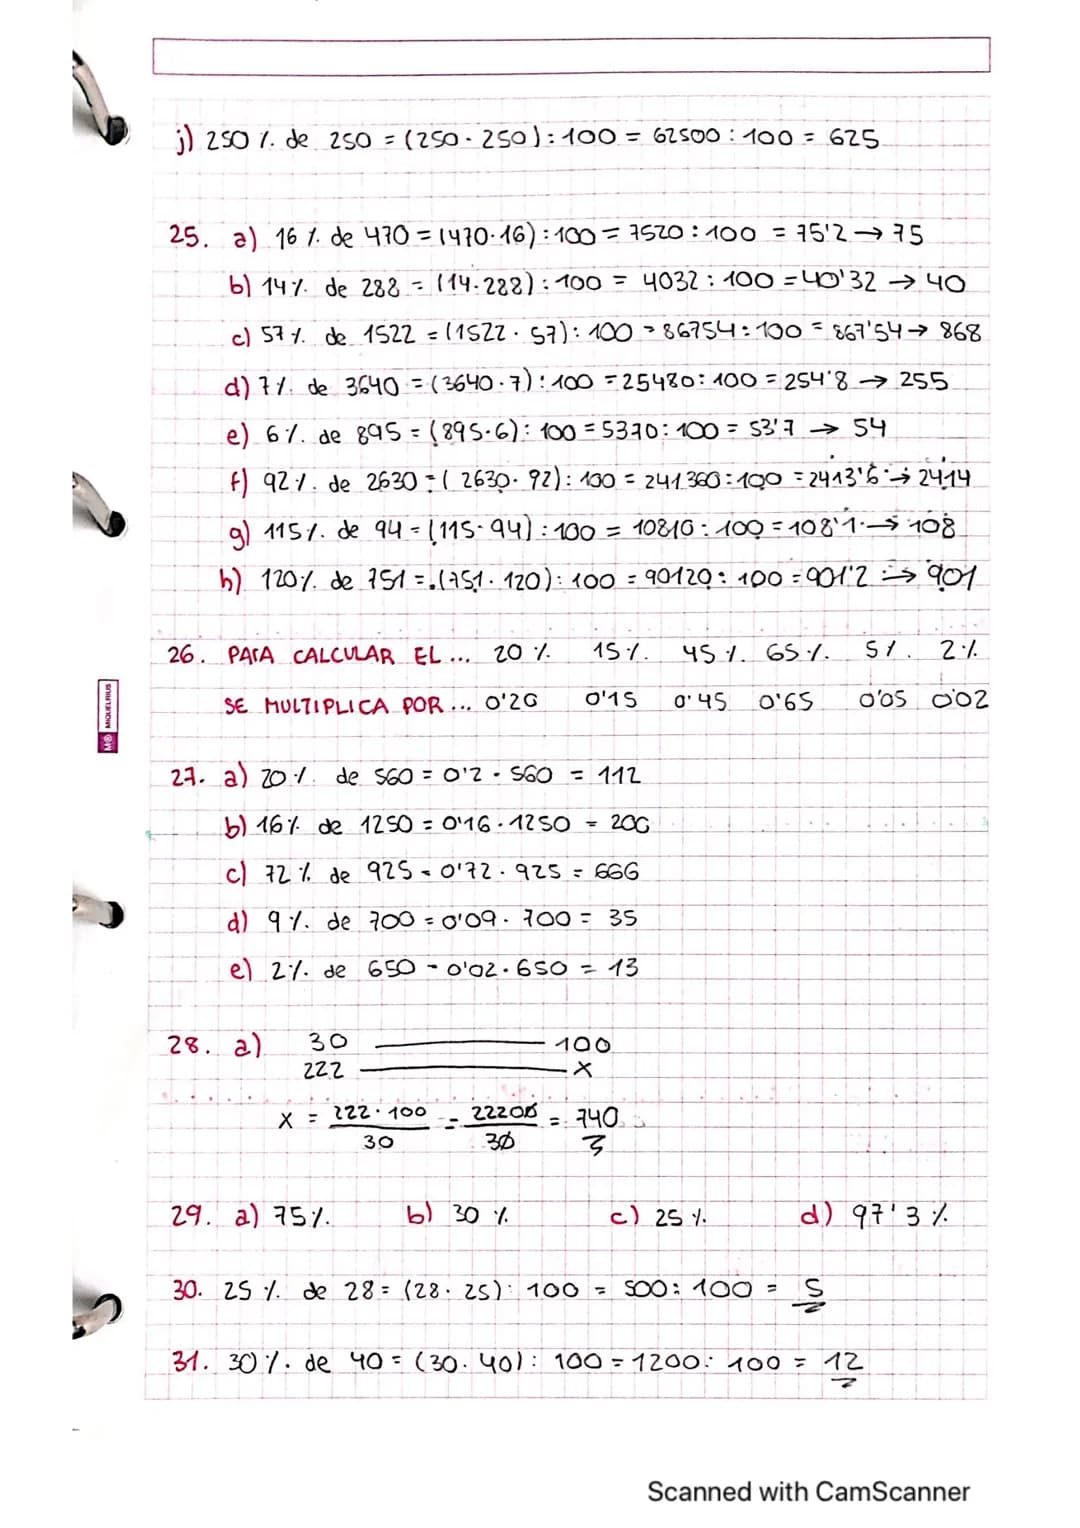 j) 250 % de 250 = (250 · 250) : 100 = 62500 : 100 = 625
25. a) 16 % de 470 = (470·16) : 100 = 7520 : 100 = 75'2 → 75
b) 14% de 288 = (14·288) : 100 = 4032 : 100 = 40'32 → 40
c) 57 % de 1522 = (1522 · 57) : 100 = 86754 : 100 = 867'54 → 868
d) 7% de 3640 = (3640·7) : 100 = 25480 : 100 = 254'8 → 255
e) 6% de 895 = (895·6) : 100 = 5370 : 100 = 53'7 → 54
f) 92% de 2630 = (2630·92) : 100 = 241360 : 100 = 2413'6 → 2414
g) 115% de 94 = (115·94) : 100 = 10810 : 100 = 108'1 → 108
h) 120% de 751 = (751·120) : 100 = 90120 : 100 = 901'2 → 901
26. PARA CALCULAR EL... 20 % 15% 45% 65% 5% 2%
SE MULTIPLICA POR... 0'20 0'15 0'45 0'65 0'05 0'02
MIQUELRIUS
27. a) 20% de 560 = 0'2 · 560 = 112
b) 16% de 1250 = 0'16 · 1250 = 200
c) 72 % de 925 = 0'72 · 925 = 666
d) 9% de 700 = 0'09 · 700 = 35
e) 2% de 650 = 0'02 · 650 = 13
28. a) 30 —— 100
222 —— x
x = 222 · 100 / 30 = 22200 / 30 = 740
29. a) 75% b) 30 % c) 25 % d) 97'3 %
30. 25 % de 28 = (28 · 25) : 100 = 500 : 100 = 5
31. 30% de 40 = (30 · 40) : 100 = 1200 : 100 = 12
Scanned with CamScanner